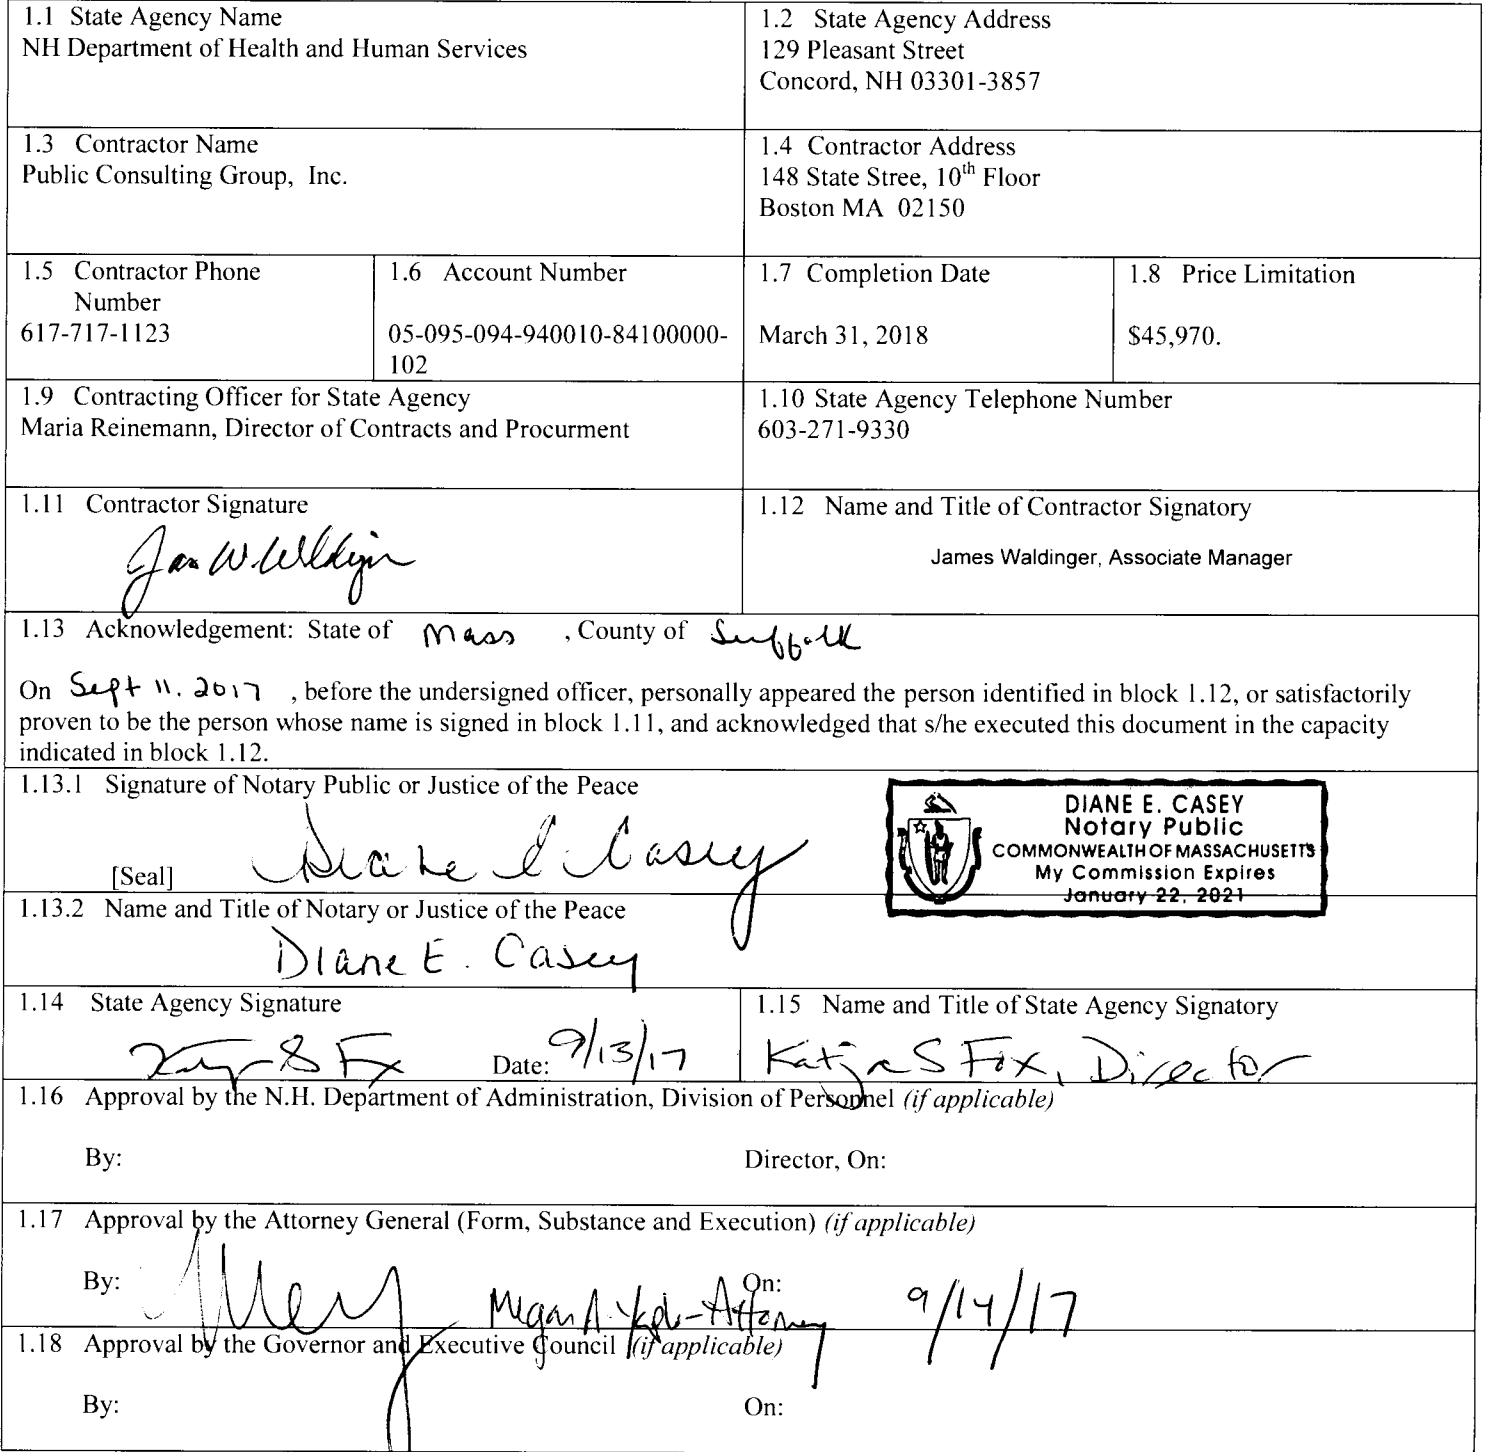 1.1 State Agency Name
NH Department of Health and Human Services
1.2 State Agency Address
129 Pleasant Street
Concord, NH 03301-3857
1.3 Contractor Name
Public Consulting Group, Inc.
1.4 Contractor Address
148 State Stree, 10th Floor
Boston MA 02150
1.5 Contractor Phone
Number
617-717-1123
1.6 Account Number
05-095-094-940010-84100000-
102
1.7 Completion Date
March 31, 2018
1.8 Price Limitation
$45,970.
1.9 Contracting Officer for State Agency
Maria Reinemann, Director of Contracts and Procurment
1.10 State Agency Telephone Number
603-271-9330
1.11 Contractor Signature
1.12 Name and Title of Contractor Signatory
James Waldinger, Associate Manager
1.13 Acknowledgement: State of Mass , County of Suffolk
On Sept 11. 2017 , before the undersigned officer, personally appeared the person identified in block 1.12, or satisfactorily
proven to be the person whose name is signed in block 1.11, and acknowledged that s/he executed this document in the capacity
indicated in block 1.12.
1.13.1 Signature of Notary Public or Justice of the Peace
Diane E. Casey
[Seal]
DIANE E. CASEY
Notary Public
COMMONWEALTH OF MASSACHUSETTS
My Commission Expires
January 22, 2021
1.13.2 Name and Title of Notary or Justice of the Peace
Diane E. Casey
1.14 State Agency Signature
Date: 9/13/17
1.15 Name and Title of State Agency Signatory
Katja S Fox, Director
1.16 Approval by the N.H. Department of Administration, Division of Personnel (if applicable)
By:
Director, On:
1.17 Approval by the Attorney General (Form, Substance and Execution) (if applicable)
By: Megan A. - Attorney
On: 9/14/17
1.18 Approval by the Governor and Executive Council (if applicable)
By:
On: